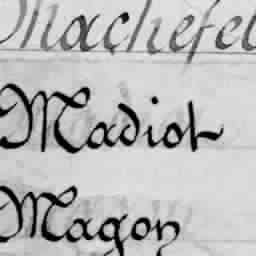 Machefel
Madiot
Magon